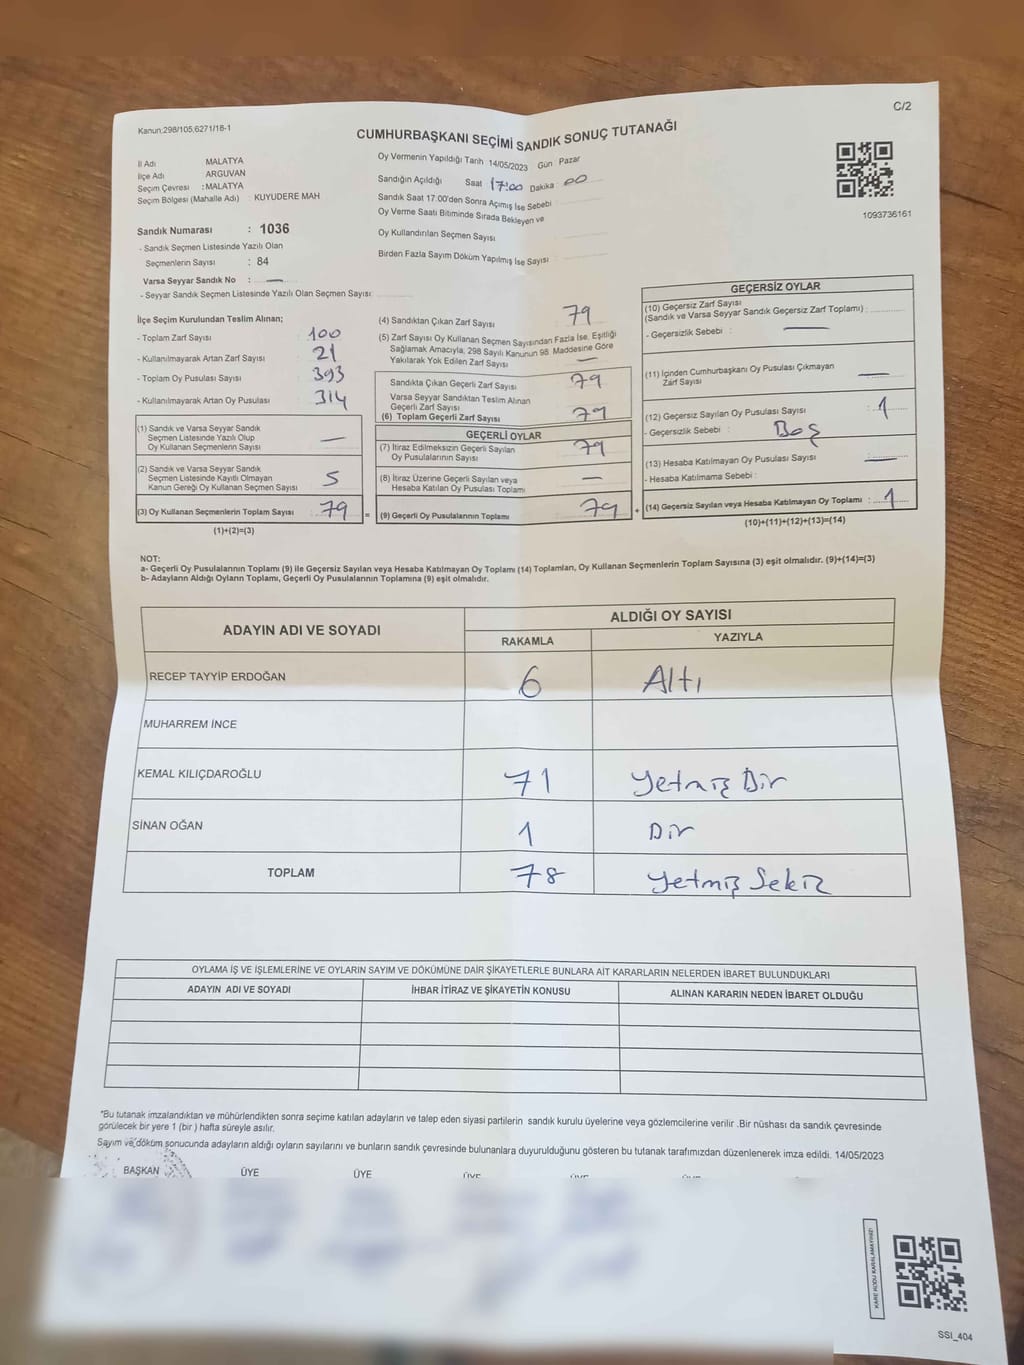 C/2
Kanun;298/105,6271/16-1
CUMHURBAŞKANI SEÇİMİ SANDIK SONUÇ TUTANAĞI
İl Adı MALATYA
İlçe Adı ARGUVAN
Seçim Çevresi : MALATYA
Seçim Bölgesi (Mahalle Adı) : KUYUDERE MAH
Sandık Numarası : 1036
- Sandık Seçmen Listesinde Yazılı Olan
Seçmenlerin Sayısı : 84
Varsa Seyyar Sandık No : —
- Seyyar Sandık Seçmen Listesinde Yazılı Olan Seçmen Sayısı:
Oy Vermenin Yapıldığı Tarih 14/05/2023 Gün Pazar
Sandığın Açıldığı Saat 17:00 Dakika : 00
Sandık Saat 17.00'den Sonra Açımış İse Sebebi :
Oy Verme Saati Bitiminde Sırada Bekleyen ve
Oy Kullandırılan Seçmen Sayısı
Birden Fazla Sayım Döküm Yapılmış İse Sayısı :
1093736161
İlçe Seçim Kurulundan Teslim Alınan;
- Toplam Zarf Sayısı : 100
- Kullanılmayarak Artan Zarf Sayısı : 21
- Toplam Oy Pusulası Sayısı : 393
- Kullanılmayarak Artan Oy Pusulası : 314
(1) Sandık ve Varsa Seyyar Sandık
Seçmen Listesinde Yazılı Olup
Oy Kullanan Seçmenlerin Sayısı —
(2) Sandık ve Varsa Seyyar Sandık
Seçmen Listesinde Kayıtlı Olmayan
Kanun Gereği Oy Kullanan Seçmen Sayısı 5
(3) Oy Kullanan Seçmenlerin Toplam Sayısı : 79 =
(1)+(2)=(3)
(4) Sandıktan Çıkan Zarf Sayısı : 79
(5) Zarf Sayısı Oy Kullanan Seçmen Sayısından Fazla İse, Eşitliği
Sağlamak Amacıyla, 298 Sayılı Kanunun 98. Maddesine Göre
Yakılarak Yok Edilen Zarf Sayısı : —
Sandıkta Çıkan Geçerli Zarf Sayısı : 79
Varsa Seyyar Sandıktan Teslim Alınan
Geçerli Zarf Sayısı
(6) Toplam Geçerli Zarf Sayısı : 79
GEÇERLİ OYLAR
(7) İtiraz Edilmeksizin Geçerli Sayılan
Oy Pusulalarının Sayısı : 79
(8) İtiraz Üzerine Geçerli Sayılan veya
Hesaba Katılan Oy Pusulası Toplamı —
(9) Geçerli Oy Pusulalarının Toplamı : 79 +
GEÇERSİZ OYLAR
(10) Geçersiz Zarf Sayısı
(Sandık ve Varsa Seyyar Sandık Geçersiz Zarf Toplamı) :
- Geçersizlik Sebebi : —
(11) İçinden Cumhurbaşkanı Oy Pusulası Çıkmayan
Zarf Sayısı —
(12) Geçersiz Sayılan Oy Pusulası Sayısı : 1
- Geçersizlik Sebebi : Boş
(13) Hesaba Katılmayan Oy Pusulası Sayısı : —
- Hesaba Katılmama Sebebi :
(14) Geçersiz Sayılan veya Hesaba Katılmayan Oy Toplamı : 1
(10)+(11)+(12)+(13)=(14)
NOT:
a- Geçerli Oy Pusulalarının Toplamı (9) ile Geçersiz Sayılan veya Hesaba Katılmayan Oy Toplamı (14) Toplamları, Oy Kullanan Seçmenlerin Toplam Sayısına (3) eşit olmalıdır. (9)+(14)=(3)
b- Adayların Aldığı Oyların Toplamı, Geçerli Oy Pusulalarının Toplamına (9) eşit olmalıdır.
ADAYIN ADI VE SOYADI
ALDIĞI OY SAYISI
RAKAMLA YAZIYLA
RECEP TAYYİP ERDOĞAN 6 Altı
MUHARREM İNCE
KEMAL KILIÇDAROĞLU 71 Yetmiş Bir
SİNAN OĞAN 1 Bir
TOPLAM 78 Yetmiş Sekiz
OYLAMA İŞ VE İŞLEMLERİNE VE OYLARIN SAYIM VE DÖKÜMÜNE DAİR ŞİKAYETLERLE BUNLARA AİT KARARLARIN NELERDEN İBARET BULUNDUKLARI
ADAYIN ADI VE SOYADI İHBAR İTİRAZ VE ŞİKAYETİN KONUSU ALINAN KARARIN NEDEN İBARET OLDUĞU
*Bu tutanak imzalandıktan ve mühürlendikten sonra seçime katılan adayların ve talep eden siyasi partilerin sandık kurulu üyelerine veya gözlemcilerine verilir .Bir nüshası da sandık çevresinde
görülecek bir yere 1 (bir ) hafta süreyle asılır.
Sayım ve döküm sonucunda adayların aldığı oyların sayılarını ve bunların sandık çevresinde bulunanlara duyurulduğunu gösteren bu tutanak tarafımızdan düzenlenerek imza edildi. 14/05/2023
BAŞKAN ÜYE ÜYE ÜYE ÜYE
KARE KODU KARALAMAYINIZ!
SSI_404